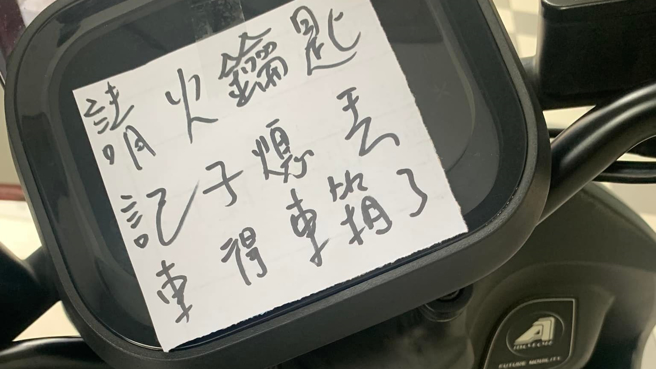 請火鑰匙
記子熄丟
車得車箱了
FUTURE MOBILITY